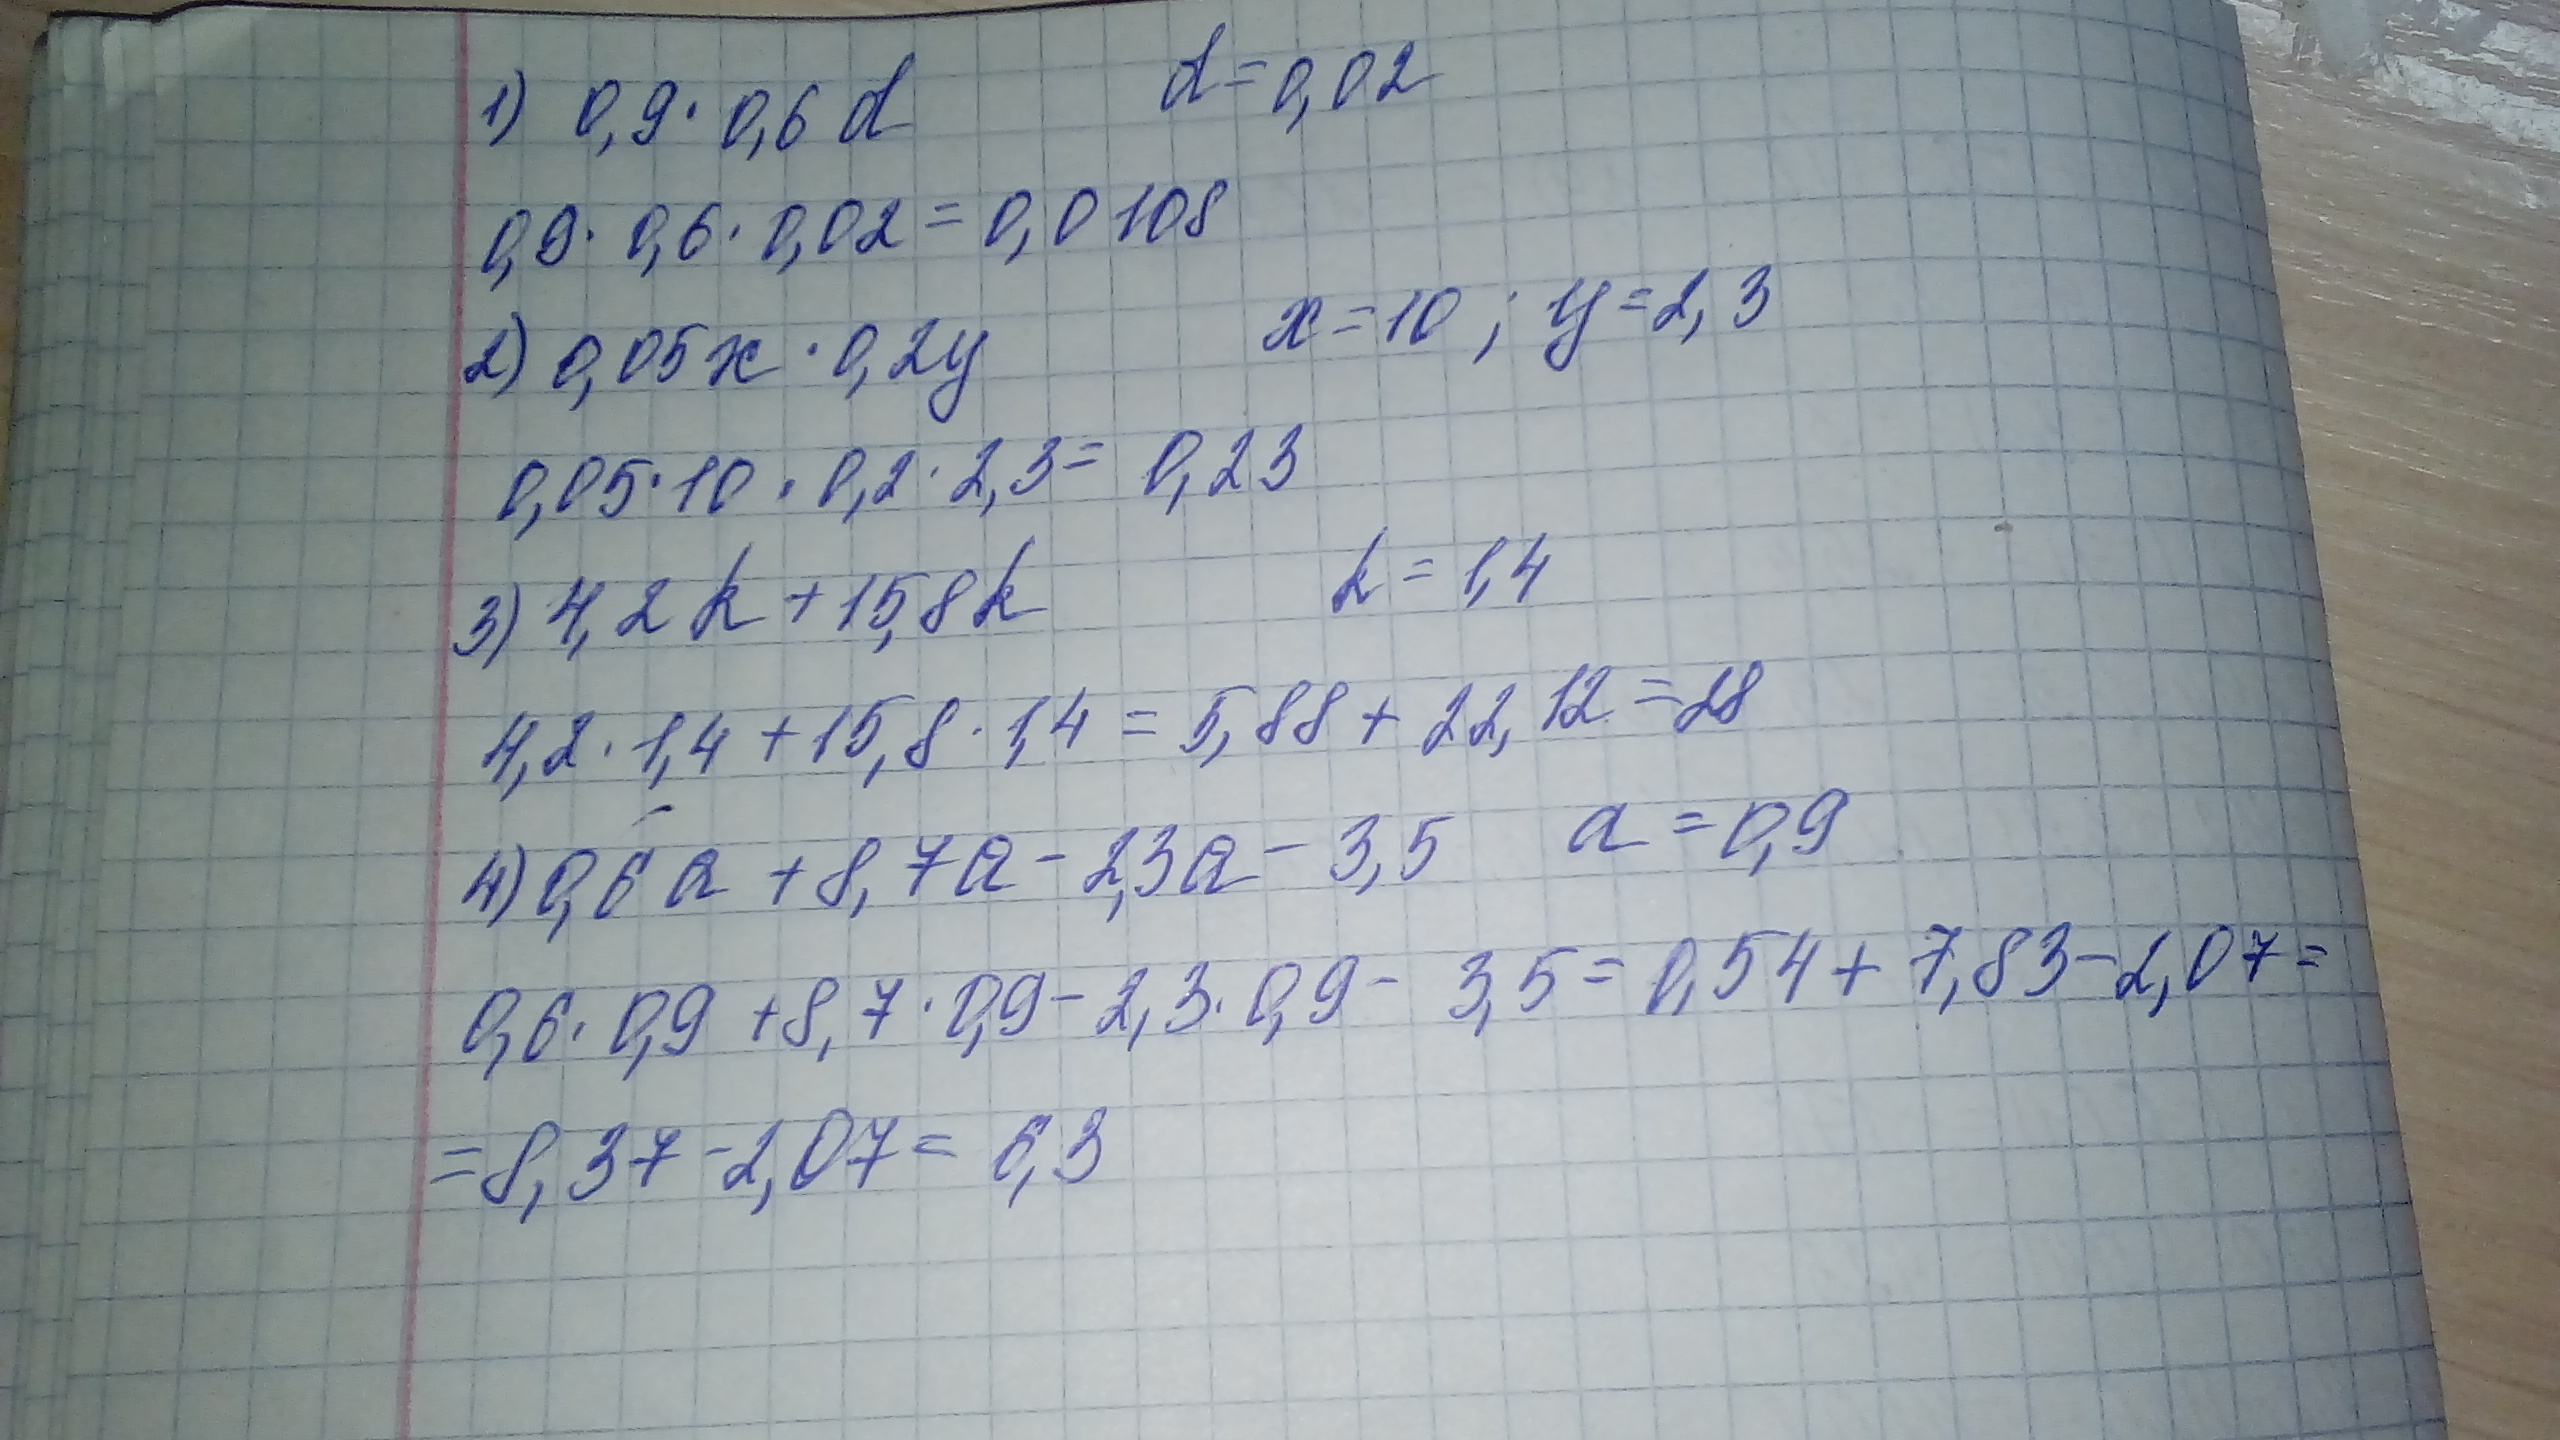 1) 0,9 · 0,6 d d = 0,02
0,9 · 0,6 · 0,02 = 0,0108
2) 0,05x · 0,2y x = 10 ; y = 2,3
0,05 · 10 · 0,2 · 2,3 = 0,23
3) 4,2k + 15,8k k = 1,4
4,2 · 1,4 + 15,8 · 1,4 = 5,88 + 22,12 = 28
4) 0,6a + 8,7a - 2,3a - 3,5 a = 0,9
0,6 · 0,9 + 8,7 · 0,9 - 2,3 · 0,9 - 3,5 = 0,54 + 7,83 - 2,07 =
= 8,37 - 2,07 = 6,3